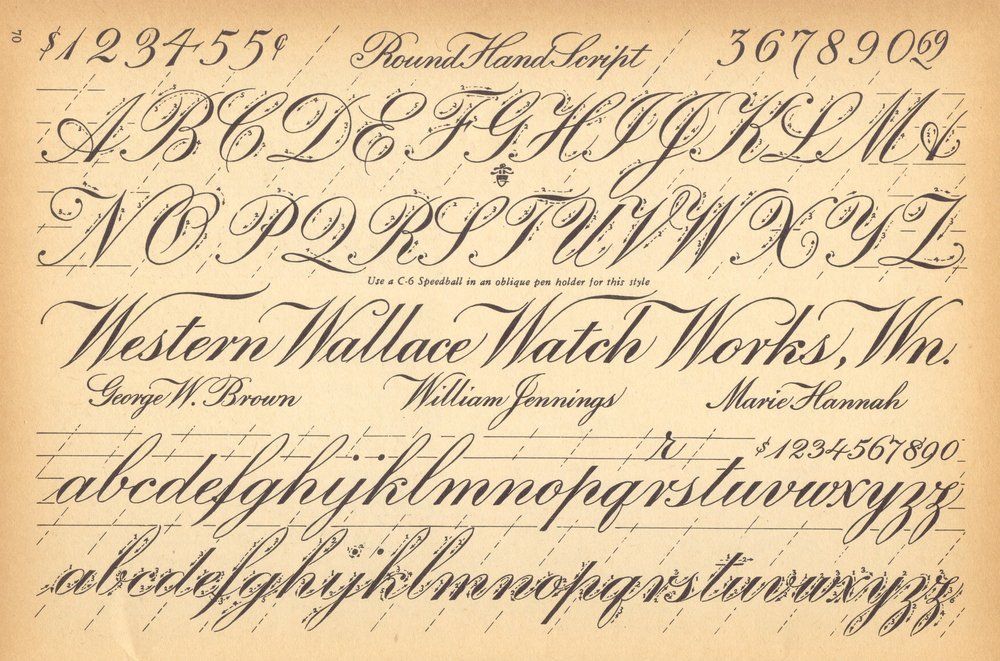 70
$123455¢ Round Hand Script 367890 69
ABCDEFGHIJKLM&
NOPQRSTUVWXYZ
Use a C-6 Speedball in an oblique pen holder for this style
Western Wallace Watch Works, Wn.
George W. Brown William Jennings Marie Hannah
r $1234567890
abcdefghijklmnopqrstuvwxyzz
abcdefghijklmnopqrstuvwxyzz